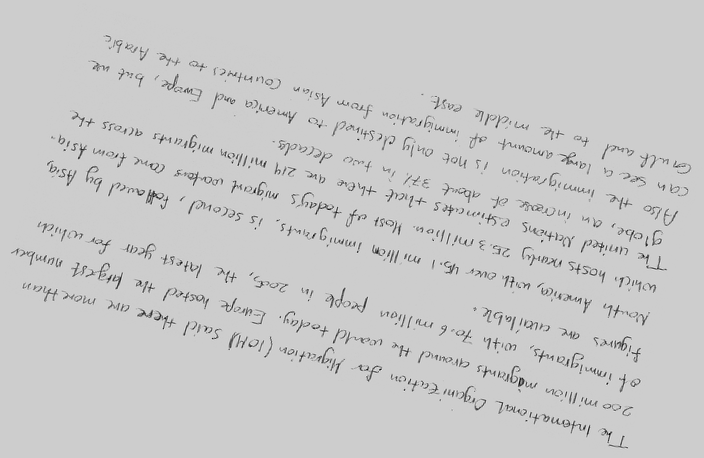 The International Organization for Migration (IOM) said there are more than
200 million migrants around the world today. Europe hosted the largest number
of immigrants, with 70.6 million people in 2005, the latest year for which
figures are available.
North America, with over 45.1 million immigrants, is second, followed by Asia,
which hosts nearly 25.3 million. Most of today's migrant workers come from Asia.
The United Nations estimates that there are 214 million migrants across the
globe, an increase of about 37% in two decads.
Also the immigration is not only destined to America and Europe, but we
can see a large amount of immigration from Asian Countries to the Arabic
Gulf and to the middle east.